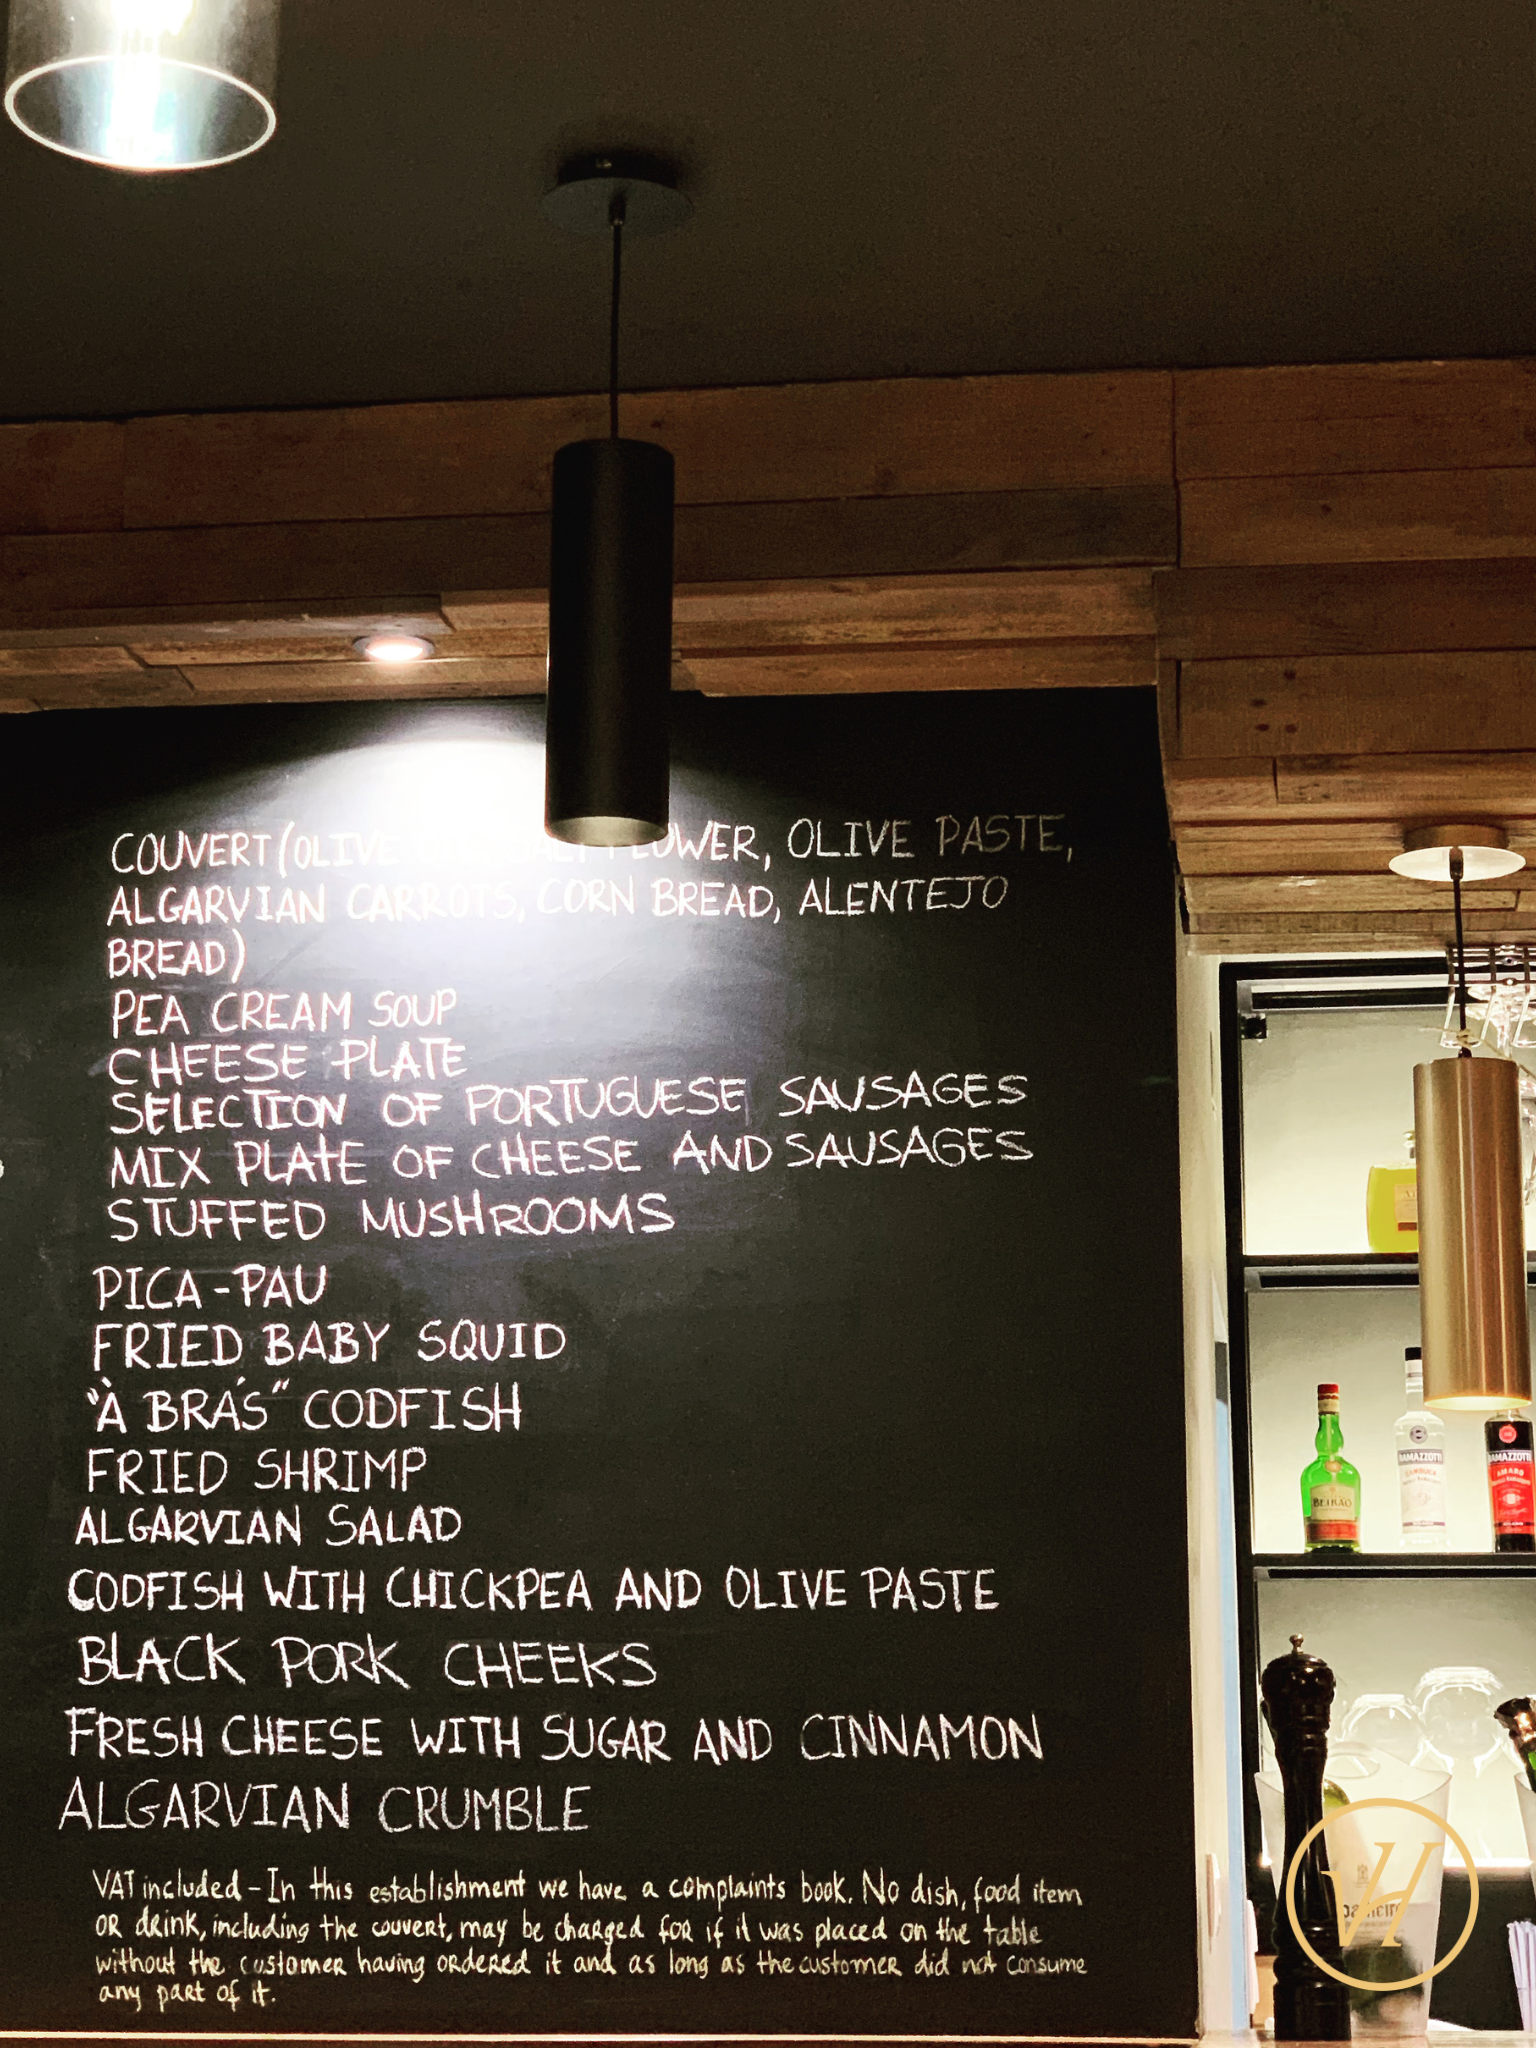 COUVERT (OLIVE FLOWER, OLIVE PASTE,
ALGARVIAN CARROTS, CORN BREAD, ALENTEJO
BREAD)
PEA CREAM SOUP
CHEESE PLATE
SELECTION OF PORTUGUESE SAUSAGES
MIX PLATE OF CHEESE AND SAUSAGES
STUFFED MUSHROOMS
PICA-PAU
FRIED BABY SQUID
"À BRÁS" CODFISH
FRIED SHRIMP
ALGARVIAN SALAD
CODFISH WITH CHICKPEA AND OLIVE PASTE
BLACK PORK CHEEKS
FRESH CHEESE WITH SUGAR AND CINNAMON
ALGARVIAN CRUMBLE
VAT included - In this establishment we have a complaints book. No dish, food item
or drink, including the couvert, may be charged for if it was placed on the table
without the customer having ordered it and as long as the customer did not consume
any part of it.
BEIRÃO
RAMAZZOTTI
SAMBUCA
RAMAZZOTTI
AMARO
VH